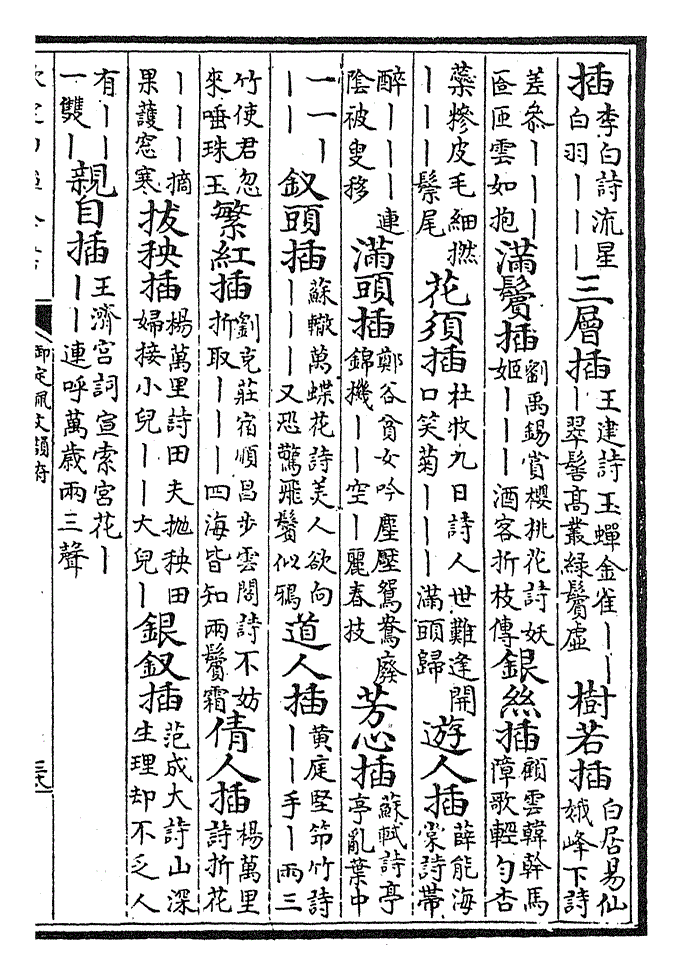 插 李白詩流星白羽丨丨丨 三層插 王建詩玉蟬金雀丨丨丨翠髻高叢綠鬢虛 樹若插 白居易仙娥峰下詩
差叅丨丨丨丨匼匝雲如抱 滿鬢插 劉禹錫賞櫻桃花詩妖姬丨丨丨酒客折枝傳 銀絲插 顧雲韓幹馬障歌輕勻杏
蘂糝皮毛細撚丨丨丨鬃尾 花須插 杜牧九日詩人世難逢開口笑菊丨丨丨滿頭歸 遊人插 薛能海棠詩帶
醉丨丨丨連陰被叟移 滿頭插 鄭谷貧女吟塵壓鴛鴦廢錦機丨丨空丨麗春技 芳心插 蘇軾詩亭亭亂葉中
一一丨丨丨 釵頭插 蘇轍萬蝶花詩美人欲向丨丨丨又恐驚飛鬢似鴉 道人插 黄庭堅笻竹詩丨丨手丨兩三
竹使君忽來唾珠玉 繁紅插 劉克莊宿順昌步雲閣詩不妨折取丨丨丨四海皆知兩鬢霜 倩人插 楊萬里詩折花
丨丨丨摘果護窓寒 拔秧插 楊萬里詩田夫抛秧田婦接小兒丨丨大兒丨 銀釵插 范成大詩山深生理却不乏人
有丨丨一雙丨 親自插 王濟宮詞宣索宮花丨丨丨連呼萬歳兩三聲
御定佩文韻府